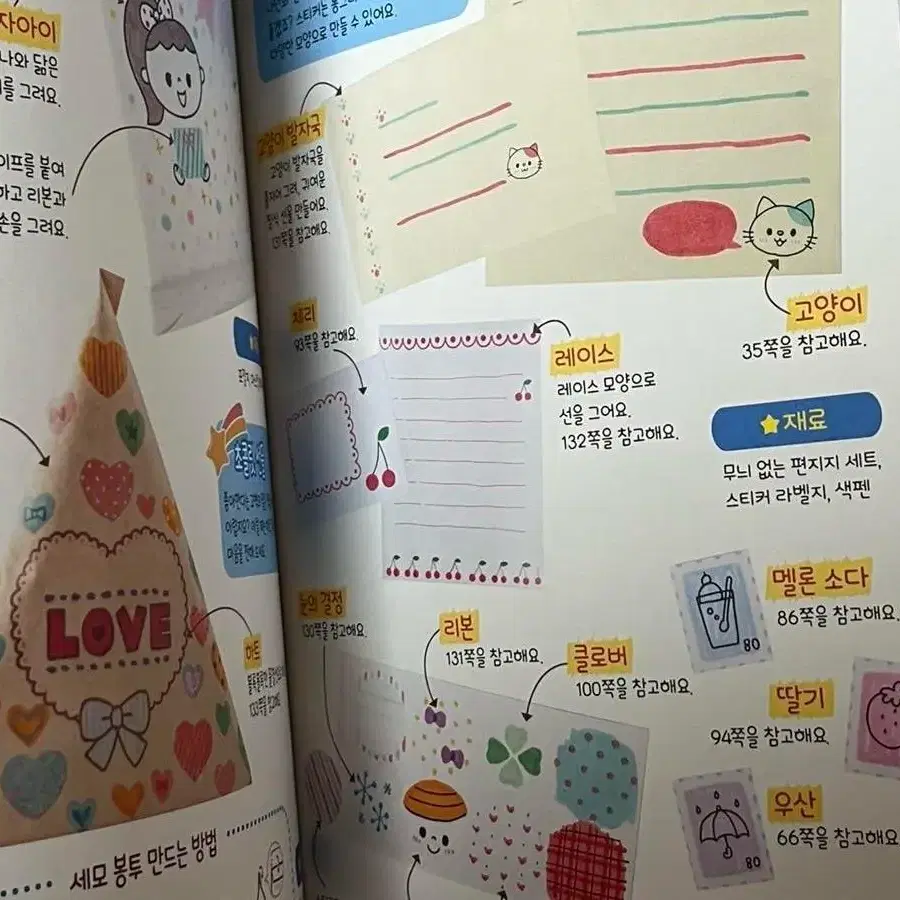 자아이
나와 닮은
를 그려요.
이프를 붙여
하고 리본과
손을 그려요.
LOVE
하트
세모 봉투 만드는 방법
스티커는
모양으로 만들 수 있어요.
고양이 발자국
고양이 발자국을
귀여운
만들어요.
131쪽을 참고해요.
고양이
35쪽을 참고해요.
체리
93쪽을 참고해요.
레이스
레이스 모양으로
선을 그어요.
132쪽을 참고해요.
재료
무늬 없는 편지지 세트,
스티커 라벨지, 색펜
눈의 결정
130쪽을 참고해요.
리본
131쪽을 참고해요.
클로버
100쪽을 참고해요.
멜론 소다
86쪽을 참고해요.
80
딸기
94쪽을 참고해요.
우산
66쪽을 참고해요.
80